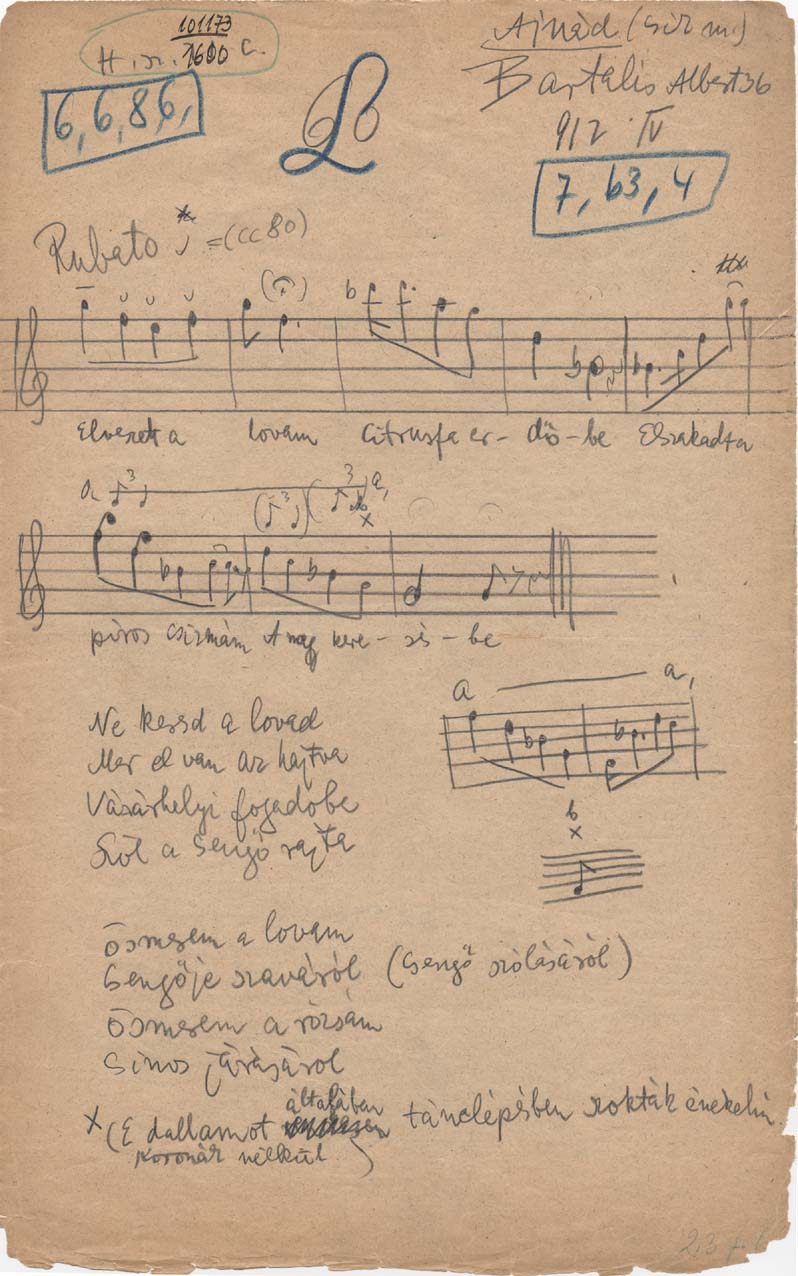 101173
H. sz. 1600 c.
6, 6, 8, 6,
Ajnád (Csík m)
Bartalis Albert 36
912 IV
7, b3, 4
Rubato = (cc 80)
Elveszett a lovam Citrusfa er- dő-be Elszakadt a
piros csizmám A nagy kere- sés-be
a a,
Ne kessd a lovad
Mer el van az hajtva
Vásárhelyi fogadóbe
Szól a Sengő rajta
a a,
b
x
Ösmerem a lovam
Sengője szaváról (Sengő szólásáról)
Ösmerem a rózsám
Sinos járásáról
x (E dallamot általában tánclépésben szokták énekelni
Koronák nélkül)